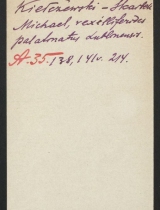 Kiełczewski - Skarbek
Michael, vexilliferides
palatinatus Lublinensis.
A-35. 138, 141v. 214.